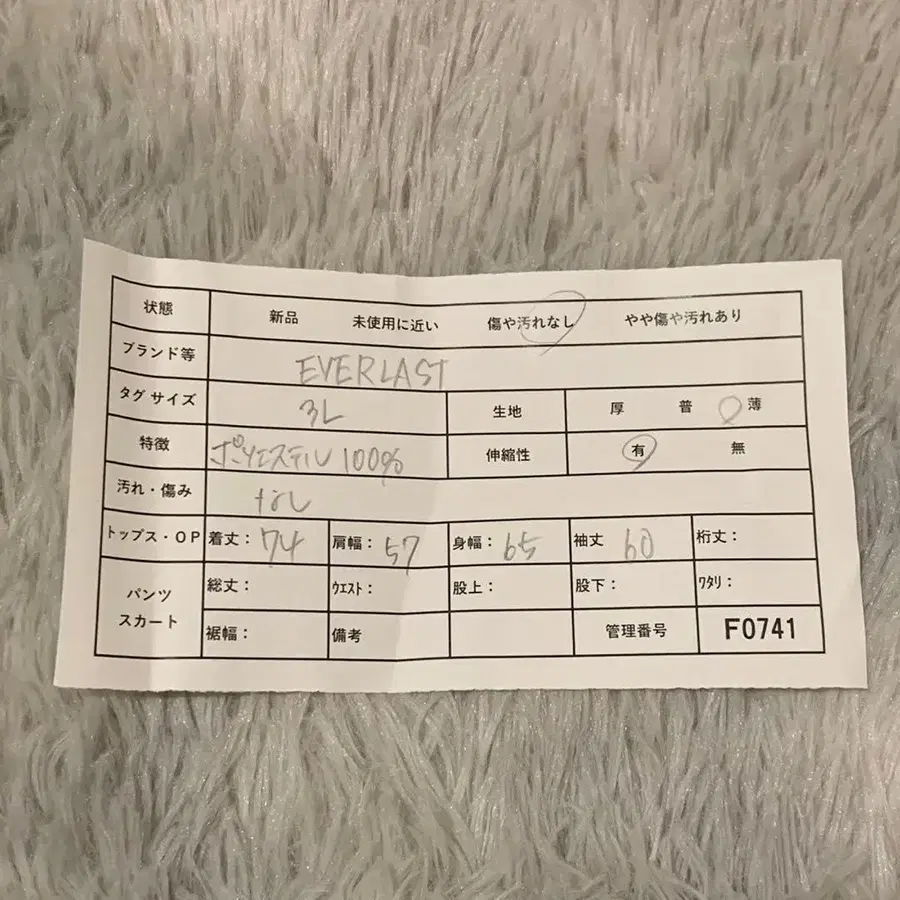 状態 新品 未使用に近い 傷や汚れなし やや傷や汚れあり
ブランド等 EVERLAST
タグサイズ 3L 生地 厚 普 薄
特徴 ポリエステル 100% 伸縮性 有 無
汚れ・傷み なし
トップス・OP 着丈: 74 肩幅: 57 身幅: 65 袖丈 60 裄丈:
パンツ スカート 総丈: ウエスト: 股上: 股下: ワタリ:
裾幅: 備考 管理番号 F0741